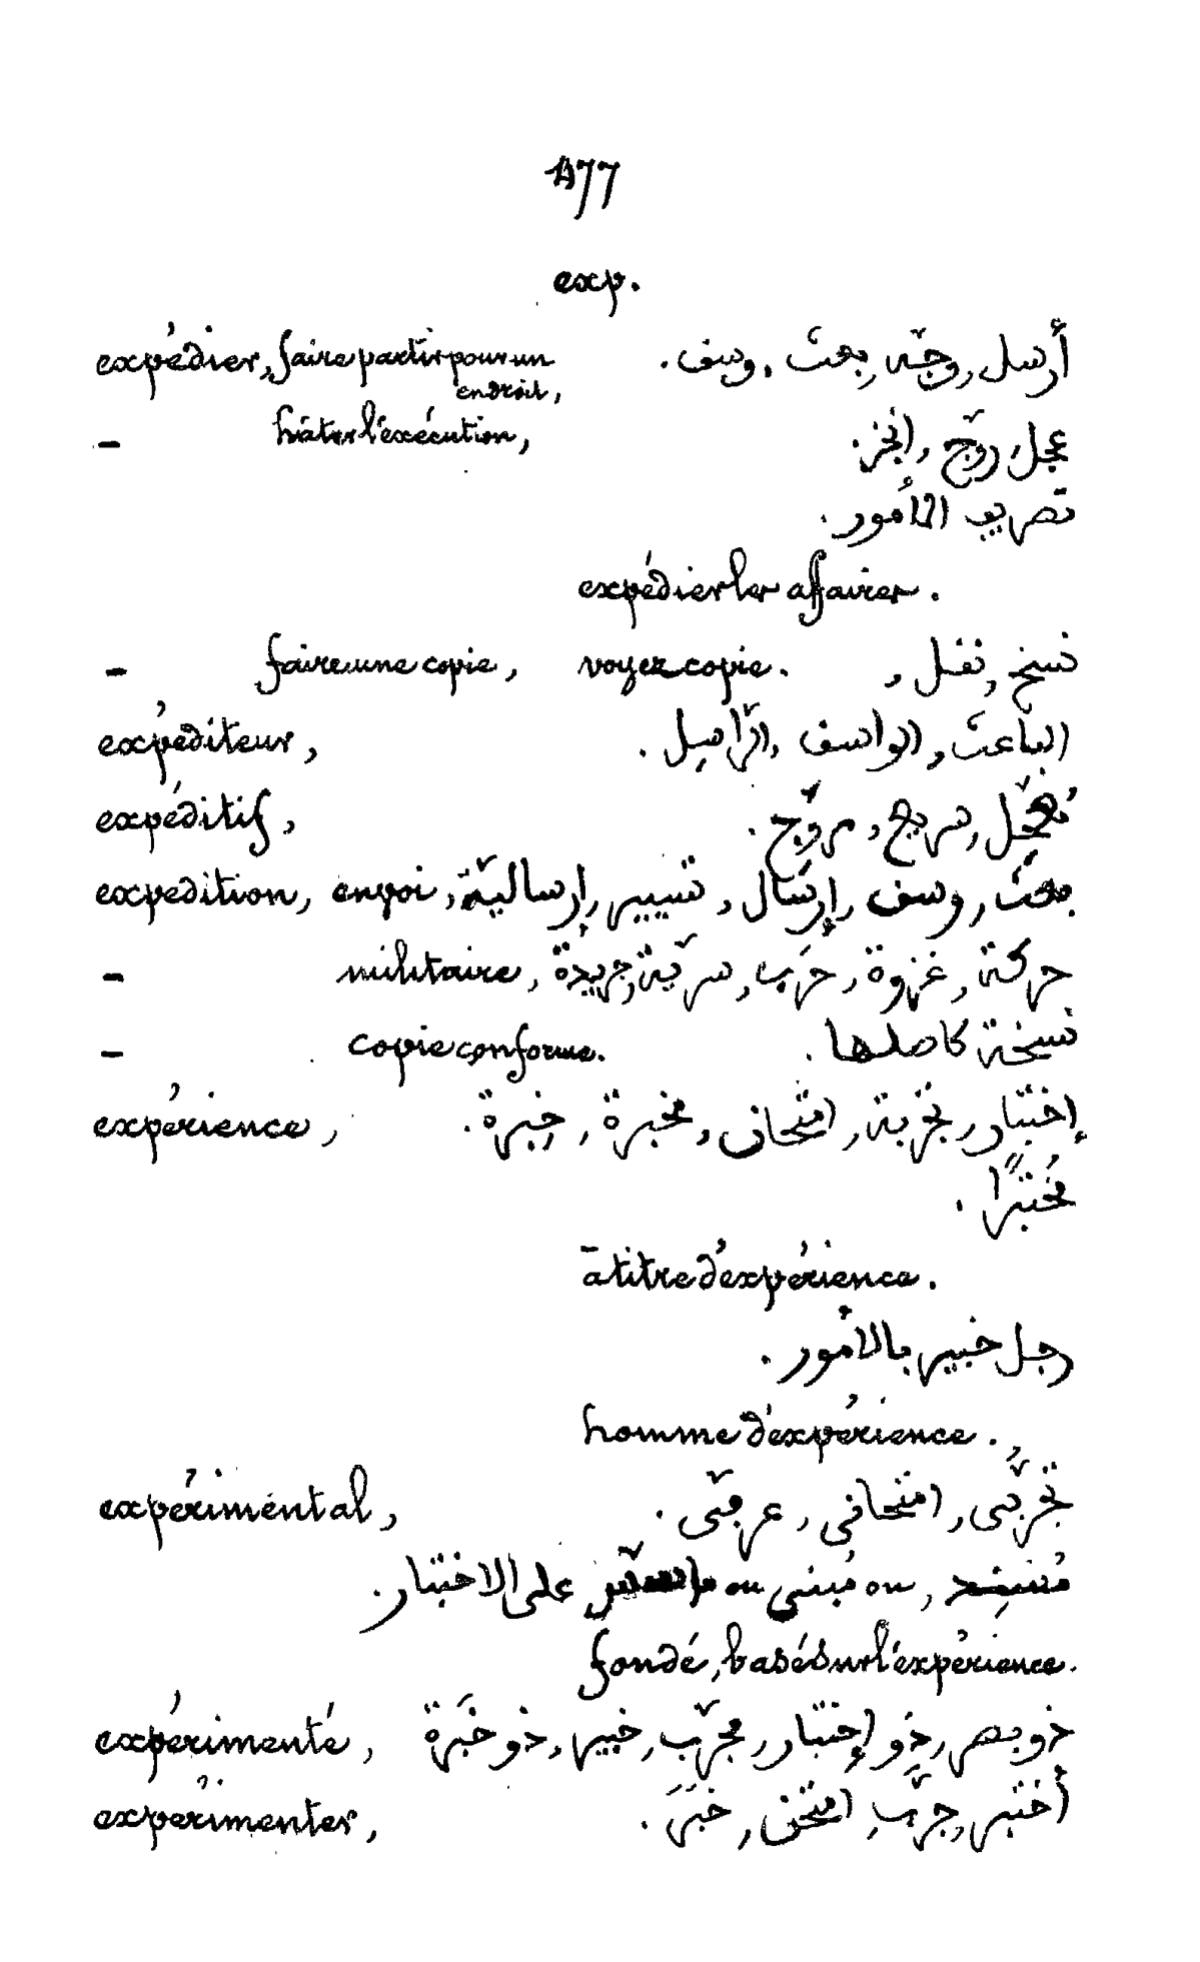 477
exp.
expédier, faire partir pour un endroit, أرسل, وجّه, بعث, وسف.
— hâter l'exécution, عجل, روّج, انجز.
تصريف الأمور.
expédier les affaires.
— faire une copie, voyez copie. نسخ, نقل,
expéditeur, الباعث, الواسف, الرّاسل.
expéditif, مُعجّل, سريع, مروّج.
expedition, envoi, بعث, وسف, إرسال, تسيير, إرساليّة,
— militaire, حركة, غزوة, حَرَب, سريّة, جريدة
— copie conforme. نسخة كاصلها.
expérience, إختبار, تجربة, امتحان, مخبرة, خِبرة.
مُختبرًا.
à titre d'expérience.
رجل خبير بالأمور.
homme d'expérience.
expérimental, تجربّي, امتحاني, عرفي.
ou مُبنى ou على الاختبار.
fondé, basé sur l'expérience.
expérimenté, ذو بصر, ذو إختبار, مجرّب, خبير, ذو خَبرة
expérimenter, أختبر, جرّب, امتحن, خَبَرَ.